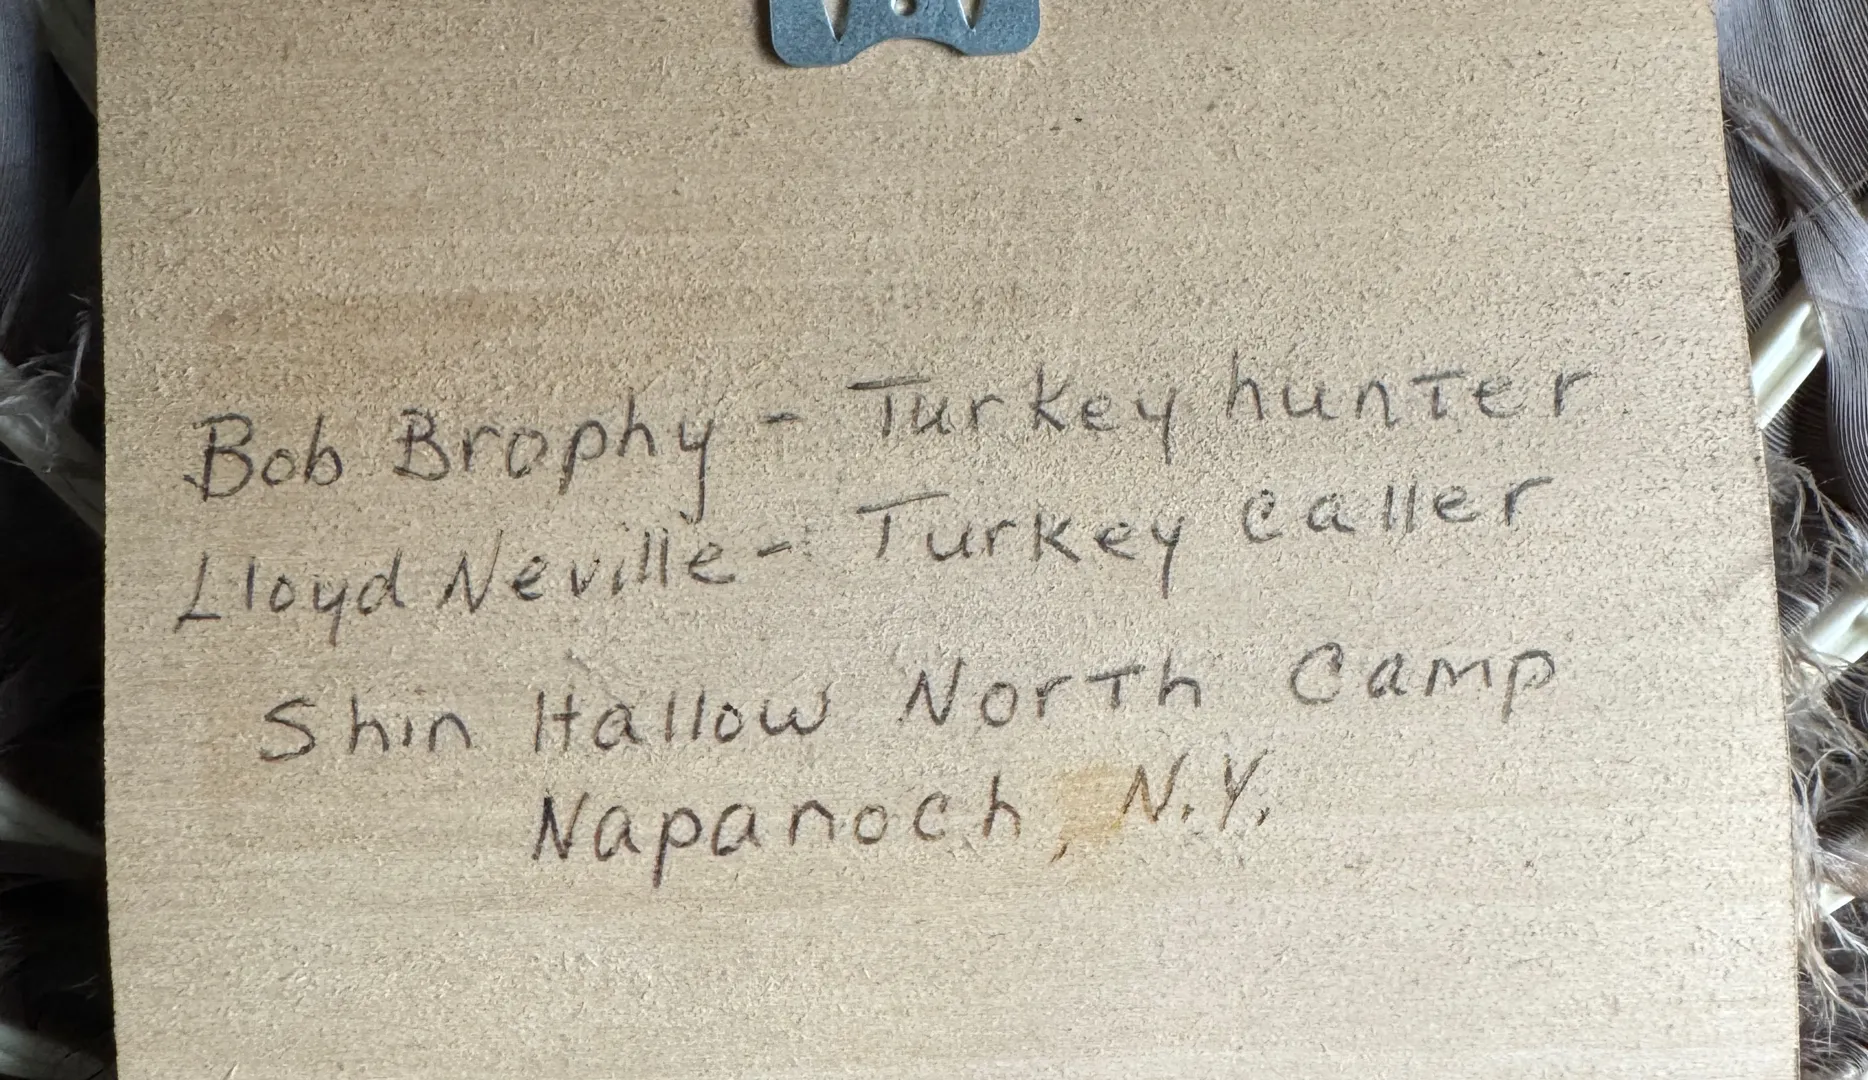 Bob Brophy - Turkey hunter
Lloyd Neville - Turkey caller
Shin Hallow North Camp
Napanoch, N.Y.